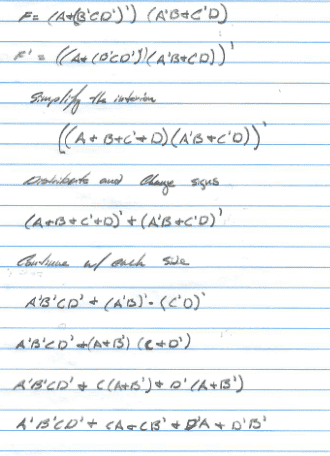 F = (A+(B'CD')') (A'B+C'D)
F' = ((A+(B'CD')')(A'B+C'D))'
Simplify the interior
((A+B+C'+D)(A'B+C'D))'
Distribute and Change signs
(A+B+C'+D)' + (A'B+C'D)'
Continue w/ each side
A'B'CD' + (A'B)' · (C'D)'
A'B'CD' + (A+B') (C+D')
A'B'CD' + C(A+B') + D'(A+B')
A'B'CD' + CA+CB' + D'A + D'B'